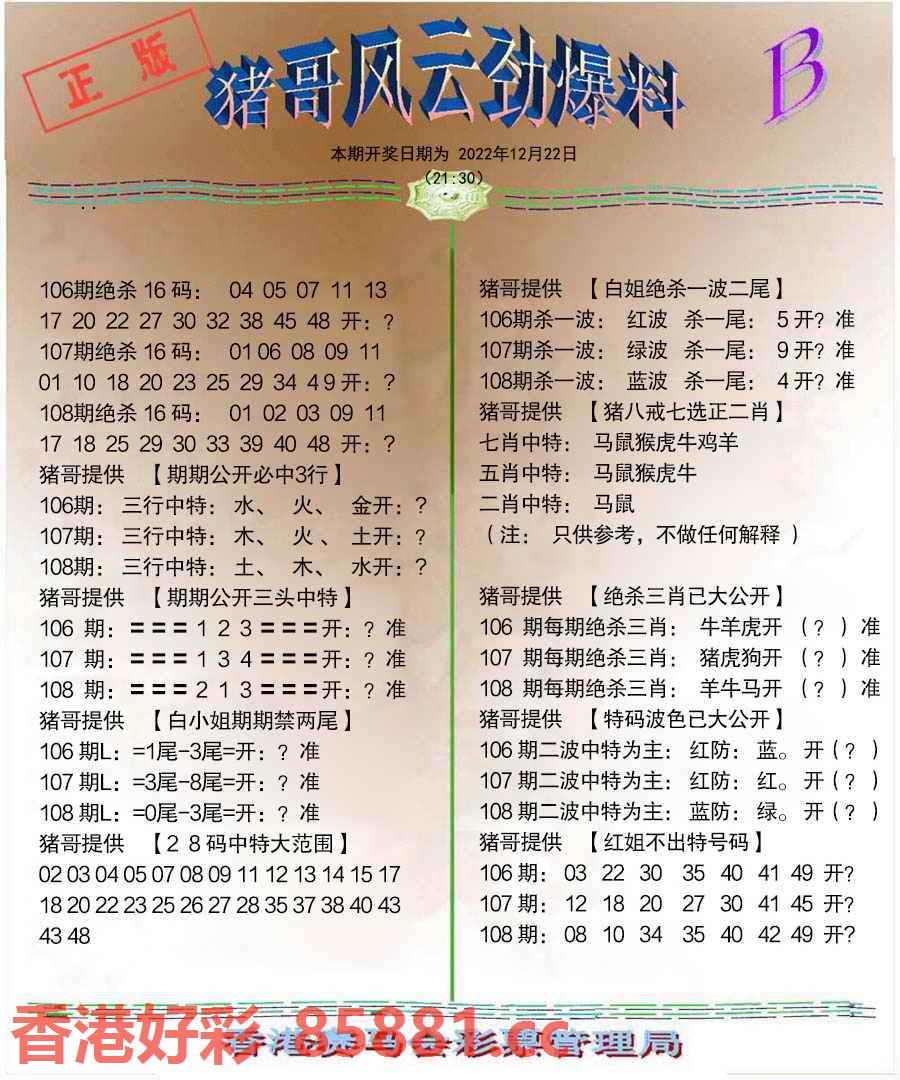 正版
猪哥风云劲爆料
B
本期开奖日期为 2022年12月22日
(21:30)
106期绝杀 16 码： 04 05 07 11 13
17 20 22 27 30 32 38 45 48 开：?
107期绝杀 16 码： 01 06 08 09 11
01 10 18 20 23 25 29 34 49 开：?
108期绝杀 16 码： 01 02 03 09 11
17 18 25 29 30 33 39 40 48 开：?
猪哥提供 【期期公开必中3行】
106期： 三行中特： 水、 火、 金开：?
107期： 三行中特： 木、 火、 土开：?
108期： 三行中特： 土、 木、 水开：?
猪哥提供 【期期公开三头中特】
106 期：=== 1 2 3 ===开：? 准
107 期：=== 1 3 4 ===开：? 准
108 期：=== 2 1 3 ===开：? 准
猪哥提供 【白小姐期期禁两尾】
106 期L：=1尾-3尾=开：? 准
107 期L：=3尾-8尾=开：? 准
108 期L：=0尾-3尾=开：? 准
猪哥提供 【28码中特大范围】
02 03 04 05 07 08 09 11 12 13 14 15 17
18 20 22 23 25 26 27 28 35 37 38 40 43
43 48
猪哥提供 【白姐绝杀一波二尾】
106期杀一波： 红波 杀一尾： 5 开? 准
107期杀一波： 绿波 杀一尾： 9 开? 准
108期杀一波： 蓝波 杀一尾： 4 开? 准
猪哥提供 【猪八戒七选正二肖】
七肖中特： 马鼠猴虎牛鸡羊
五肖中特： 马鼠猴虎牛
二肖中特： 马鼠
（注： 只供参考，不做任何解释）
猪哥提供 【绝杀三肖已大公开】
106 期每期绝杀三肖： 牛羊虎开 （?）准
107 期每期绝杀三肖： 猪虎狗开 （?）准
108 期每期绝杀三肖： 羊牛马开 （?）准
猪哥提供 【特码波色已大公开】
106 期二波中特为主：红防：蓝。开(?)
107 期二波中特为主：红防：红。开(?)
108 期二波中特为主：蓝防：绿。开(?)
猪哥提供 【红姐不出特号码】
106 期： 03 22 30 35 40 41 49 开?
107 期： 12 18 20 27 30 41 45 开?
108 期： 08 10 34 35 40 42 49 开?
香港好彩 85881.cc
香港赛马会彩票管理局